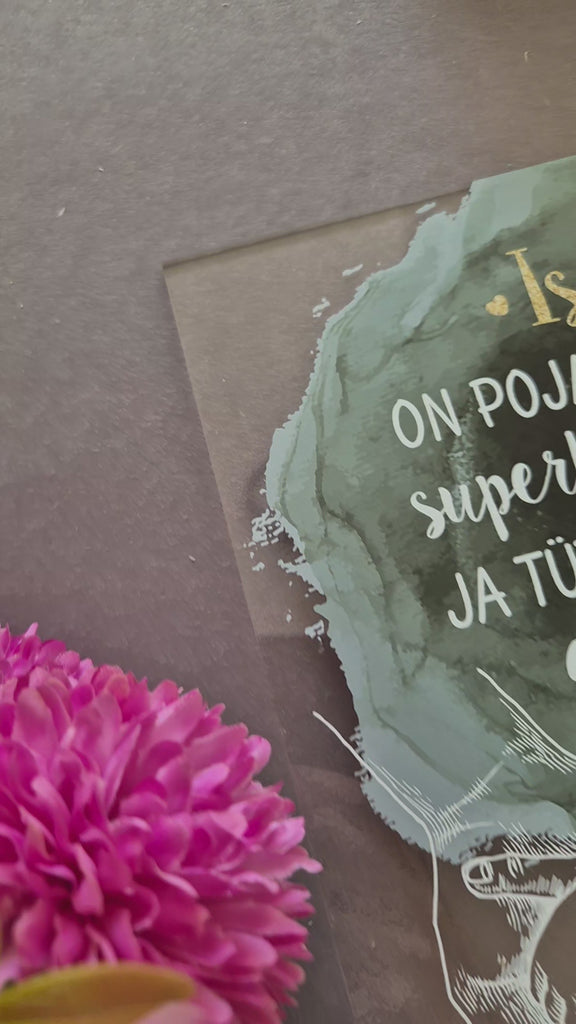 Is
ON POJA
super
JA TÜ